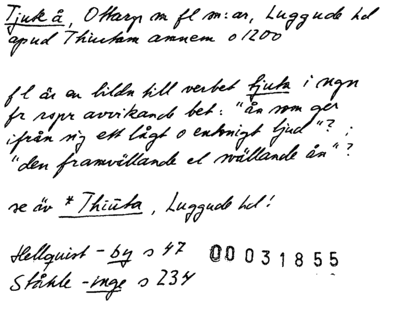 Tjuk å, Ottarp m fl sn:ar, Luggude hd
apud Thiutam amnem o 1200
fl är en bildn till verbet tjuta i ngn
fr rspr avvikande bet: "ån som ger
ifrån sig ett lågt o entonigt ljud"? ;
"den framvällande el vällande ån"?
se äv * Thiūta, Luggude hd!
Hellquist - by s 47 00031855
Ståhle - inge s 234